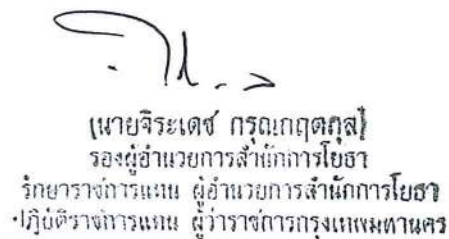 (นายจิระเดช กรุณกฤตกุล)
รองผู้อำนวยการสำนักการโยธา
รักษาราชการแทน ผู้อำนวยการสำนักการโยธา
ปฏิบัติราชการแทน ผู้ว่าราชการกรุงเทพมหานคร